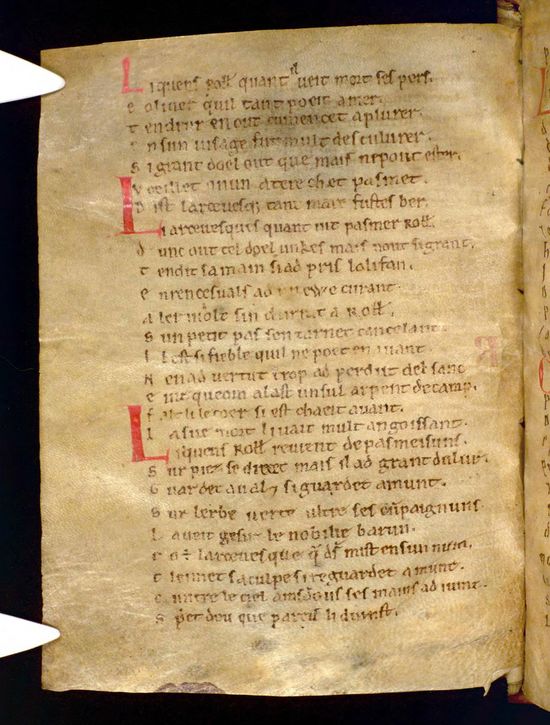 Li quens Roll quant il veit mort ses pers.
e oliuer quil tant poeit amer.
tendrur en out cumencet a plurer.
en sun uisage fut mult desculurer.
si grant doel out que mais ne pout ester.
voeillet o nun a tere chet pasmet.
dist larceuesq; tant mare fustes ber.
Li arceuesques quant uit pasmer Roll.
dunc out tel doel unkes mais nout si grant.
tendit sa main si ad pris lolifan.
en rencesuals ad un ewe curant.
aler i uolt sin durrat a Roll.
sun petit pas sen turnet cancelant.
il est si fieble quil ne poet en auant.
nen ad uertut trop ad perdut del sanc
einz que om alast un sul arpent de camp.
falt li le coer si est chaeit auant.
la sue mort li uait mult angoissant.
Li quens Roll reuient de pasmeisuns.
sur piez se drecet mais il ad grant dulur.
guardet aual 7 si guardet amunt.
sur lerbe uerte ultre ses cumpaignuns
la ueit gesir le nobilie barun.
co est larceuesque que ds mist en sun num.
cleimet sa culpe si reguardet amunt.
cuntre le ciel amsdous ses mains ad iuint.
si priet deu que pareis li duinst.